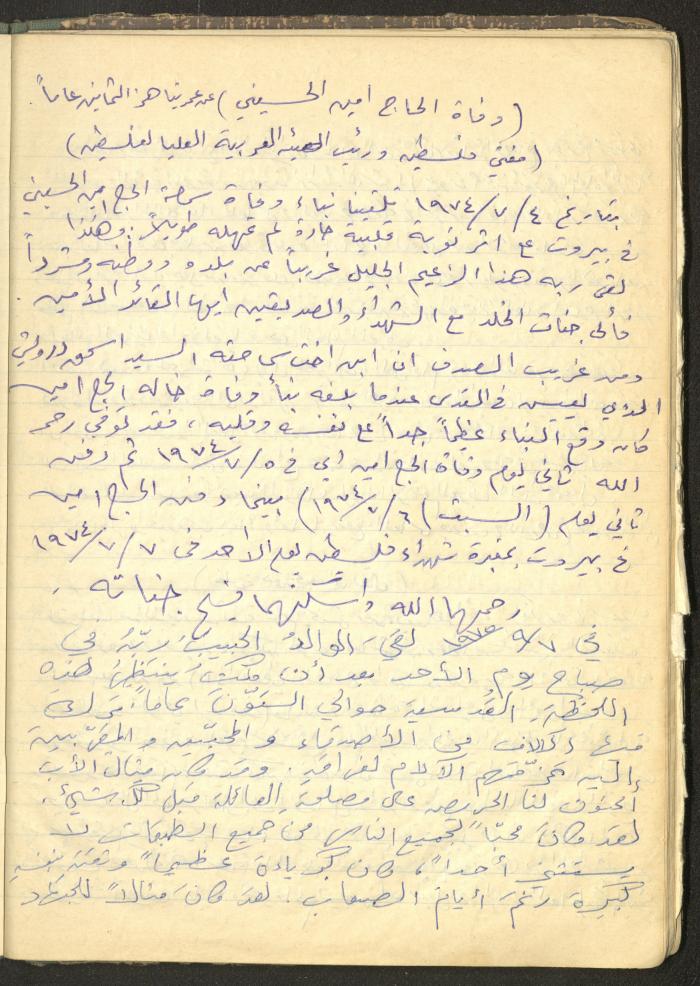 (وفاة الحاج امين الحسيني) عن عمر يناهز الثمانين عاماً.
(مفتي فلسطين ورئيس الهيئة العربية العليا لفلسطين)
بتاريخ ٤/٧/١٩٧٤ تلقينا نباء وفاة سماحة الحج امين الحسيني
في بيروت على اثر نوبة قلبية حادة لم تمهله طويلاً، وهكذا
لقي ربه هذا الزعيم الجليل غريباً عن بلده ووطنه ومشرداً
فألى جنات الخلد مع الشهداء والصديقين ايها القائد الأمين.
ومن غريب الصدف ان ابن اخت سماحته السيد اسحق درويش
الذي يعيش في القدس عندما بلغه نبأ وفاة خاله الحج امين
كان وقع النباء عظيماً جداً على نفسه وقلبه، فقد توفي رحمه
الله ثاني يوم وفاة الحج امين اي في ٥/٧/١٩٧٤ ثم دفن
ثاني يوم (السبت) ٦/٧/١٩٧٤) بينما دفن الحج امين
في بيروت بمقبرة شهداء فلسطين يوم الاحد في ٧/٧/١٩٧٤
رحمهما الله واسكنهما فسيح جناته.
في ٧/٩ لقيَ الوالدُ الحبيبُ ربّهُ في
صباح يوم الأحد بعد أن مكثَ ينتظرُ هذه
اللحظةِ القُدسيةِ حوالي الستّون عاماً. ترك
الآلاف من الأصدقاء والمحبّين والمقرّبين
إليه تمزّقهم الآلام لفراقهِ. وقد كان مثالَ الأبِ
الحنون لنا الحريص على مصلحةِ العائلة قبل كل شيئ.
لقد كانَ محبّاً لجميع الناس من جميع الطبقات لا
يستثني أحداً، كان كبرياءهُ عظيماً وثقته بنفسهِ
كبيرة رغمَ أيام الصعاب. لقد كانَ مثالاً للجهاد